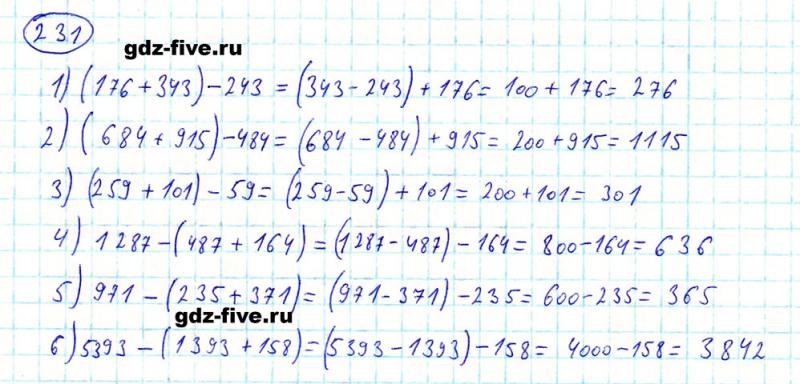 231
gdz-five.ru
1) (176 + 343) - 243 = (343 - 243) + 176 = 100 + 176 = 276
2) (684 + 915) - 484 = (684 - 484) + 915 = 200 + 915 = 1115
3) (259 + 101) - 59 = (259 - 59) + 101 = 200 + 101 = 301
4) 1287 - (487 + 164) = (1287 - 487) - 164 = 800 - 164 = 636
5) 971 - (235 + 371) = (971 - 371) - 235 = 600 - 235 = 365
gdz-five.ru
6) 5393 - (1393 + 158) = (5393 - 1393) - 158 = 4000 - 158 = 3842